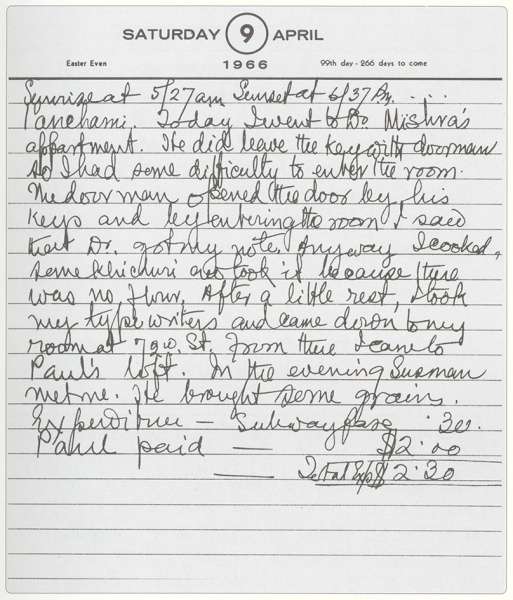 SATURDAY 9 APRIL
Easter Even 1966 99th day - 266 days to come
Sunrise at 5/27 am Sunset at 6/37 Pm. . . .
Panchami. Today I went to Dr. Mishra's
appartment. He did leave the key with doorman
so I had some difficulty to enter the room.
The door man opened the door by his
keys and by entering the room I saw
that Dr. got my note. Anyway I cooked,
some khichuri and took it because there
was no flour. After a little rest, I took
my type writers and came down to my
room at 72 W. St. From there I came to
Paul's loft. In the evening
met me. He brought some grains.
Expenditure — Subway fare .30.
Paul paid — $2.00
— Total Exp $2.30